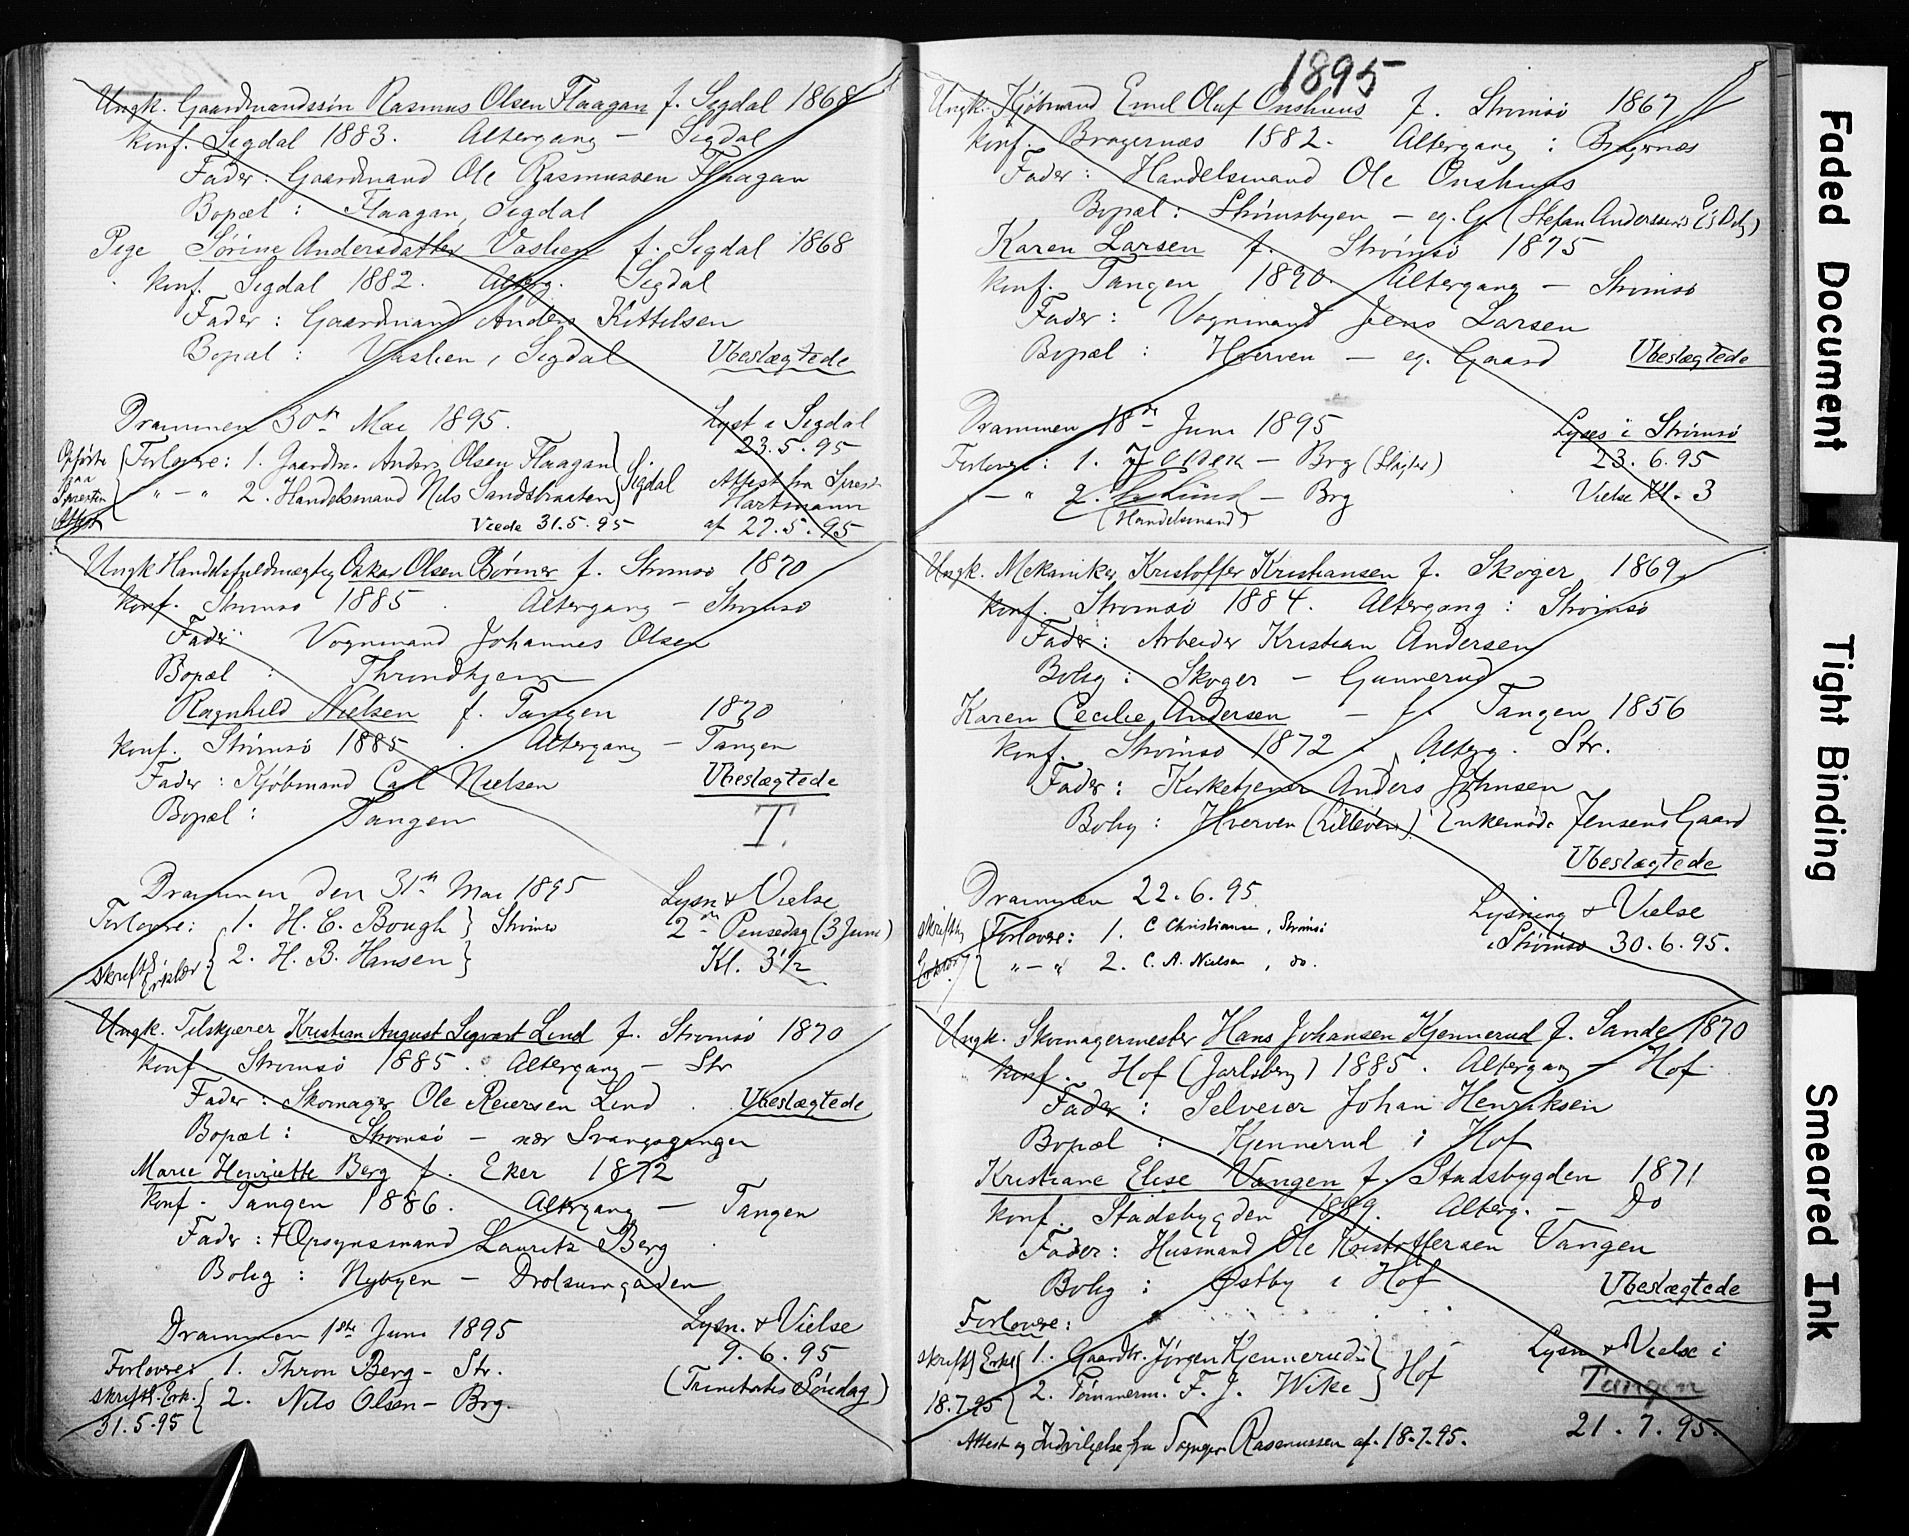 Ungk. Gaardmandssøn Rasmus Olsen Flaagan f. Sigdal 1868
Konf. Sigdal 1883. Altergang – Sigdal
Fader: Gaardmand Ole Rasmussen Flaagan
Bopæl: Flaagan, Sigdal
Pige Sørine Andersdatter Vaslien f. Sigdal 1868
Konf. Sigdal 1882. Alterg. Sigdal
Fader: Gaardmand Anders Kittelsen
Bopæl: Vaslien, Sigdal Ubeslægtede
Drammen 30te Mai 1895. Lyst i Sigdal
23.5.95
Opførte paa Attest
Forlovere: 1. Gaardm. Anders Olsen Flaagan
" – " 2. Handelsmand Nils Sandsbraaten } Sigdal
Attest fra Sprest
Hartmann
af 27.5.95
Viede 31.5.95
Ungk. Handelsfuldmægtig Oskar Olsen Børmer f. Strømsø 1870
Konf. Strømsø 1885. Altergang – Strømsø
Fader Vognmand Johannes Olsen
Bopæl: Throndhjem
Ragnhild Nielsen f. Tangen 1870
Konf. Strømsø 1885. Altergang – Tangen
Fader: Kjøbmand Carl Nielsen Ubeslægtede
Bopæl: Tangen T.
Drammen den 31te Mai 1895 Lysn. & Vielse
Forlovere: 1. H. C. Bough } Strømsø 2den Pinsedag (3 Juni)
Skriftl. Erklær. 2. H. B. Hansen Kl. 3 1/2
Ungk. Tilskjærer Kristian August Sigvart Lind f. Strømsø 1870
Konf. Strømsø 1885. Altergang – Str
Fader: Skomager Ole Reiersen Lind. Ubeslægtede
Bopæl: Strømsø – nær Svangsgangen
Marie Henriette Berg f. Eker 1872
Konf. Tangen 1886. Altergang – Tangen
Fader: † Opsynsmand Lauritz Berg
Bolig: Nybyen – Drolsumgaden
Drammen 1ste Juni 1895 Lysn. & Vielse
9.6.95
Forlovere: 1. Thron Berg – Str. (Trinitatis Søndag)
Skriftl. Erk. 2. Nils Olsen – Brg.
31.5.95
1895
Ungk. Kjøbmand Emil Olaf Onshuus f. Strømsø 1867
Konf. Bragernæs 1882. Altergang: Bragernæs
Fader: Handelsmand Ole Onshuus
Bopæl: Strømsbyen – eg. G. (Stefan Anderssens
Karen Larsen f. Strømsø 1875
Konf. Tangen 1890. Altergang – Strømsø
Fader: Vognmand Jens Larsen
Bopæl: Hverven – eg. Gaard Ubeslægtede
Drammen 18de Juni 1895 Lyses i Strømsø
Forlovere: 1. – Brg (Slagter) 23.6.95
" – " 2. Lund – Brg Vielse Kl. 3
(Handelsmand)
Ungk. Mekaniker Kristoffer Kristiansen f. Skoger 1869
Konf. Strømsø 1884. Altergang: Strømsø
Fader: Arbeider Kristian Andersen
Bolig: Skoger – Gunnerud
Karen Cecilie Andersen – f. Tangen 1856
Konf. Strømsø 1872. Alterg. Str.
Fader: Kirketjener Anders Johnsen
Bolig: Hverven (Lilleveien) Jensens Gaard
Ubeslægtede
Drammen 22.6.95. Lysning & Vielse
Skriftlig Forlovere: 1. C Christiansen, Strømsø i Strømsø 30.6.95.
" – " 2. C. A. Nielsen, do.
Ungk. Skomagermester Hans Johansen Kjennerud f. Sande 1870
Konf. Hof (Jarlsberg) 1885. Altergang – Hof.
Fader: Selveier Johan Henriksen
Bopæl: Kjennerud i Hof
Kristiane Elise Vangen f. Stadsbygden 1871
Konf. Stadsbygden 1889. Alterg. – Do
Fader: Husmand Ole Kristoffersen Vangen
Bolig: Østby i Hof Ubeslægtede
Forlovere:
Skriftl. Erkl. 1. Gaardbr. Jørgen Kjennerud } Hof Lysn & Vielse i
18.7.95 2. Tømmerm. F. J. Wike Tangen
Attest og Indvilgelse fra Sognepr. Rasmussen af 18.7.95. 21.7.95.
Faded Document
Tight Binding
Smeared Ink